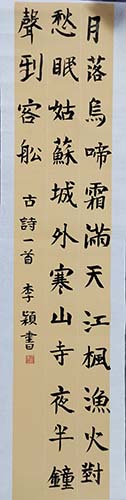 月落烏啼霜滿天江楓漁火對
愁眠姑蘇城外寒山寺夜半鐘
聲到客船
古詩一首 李穎書